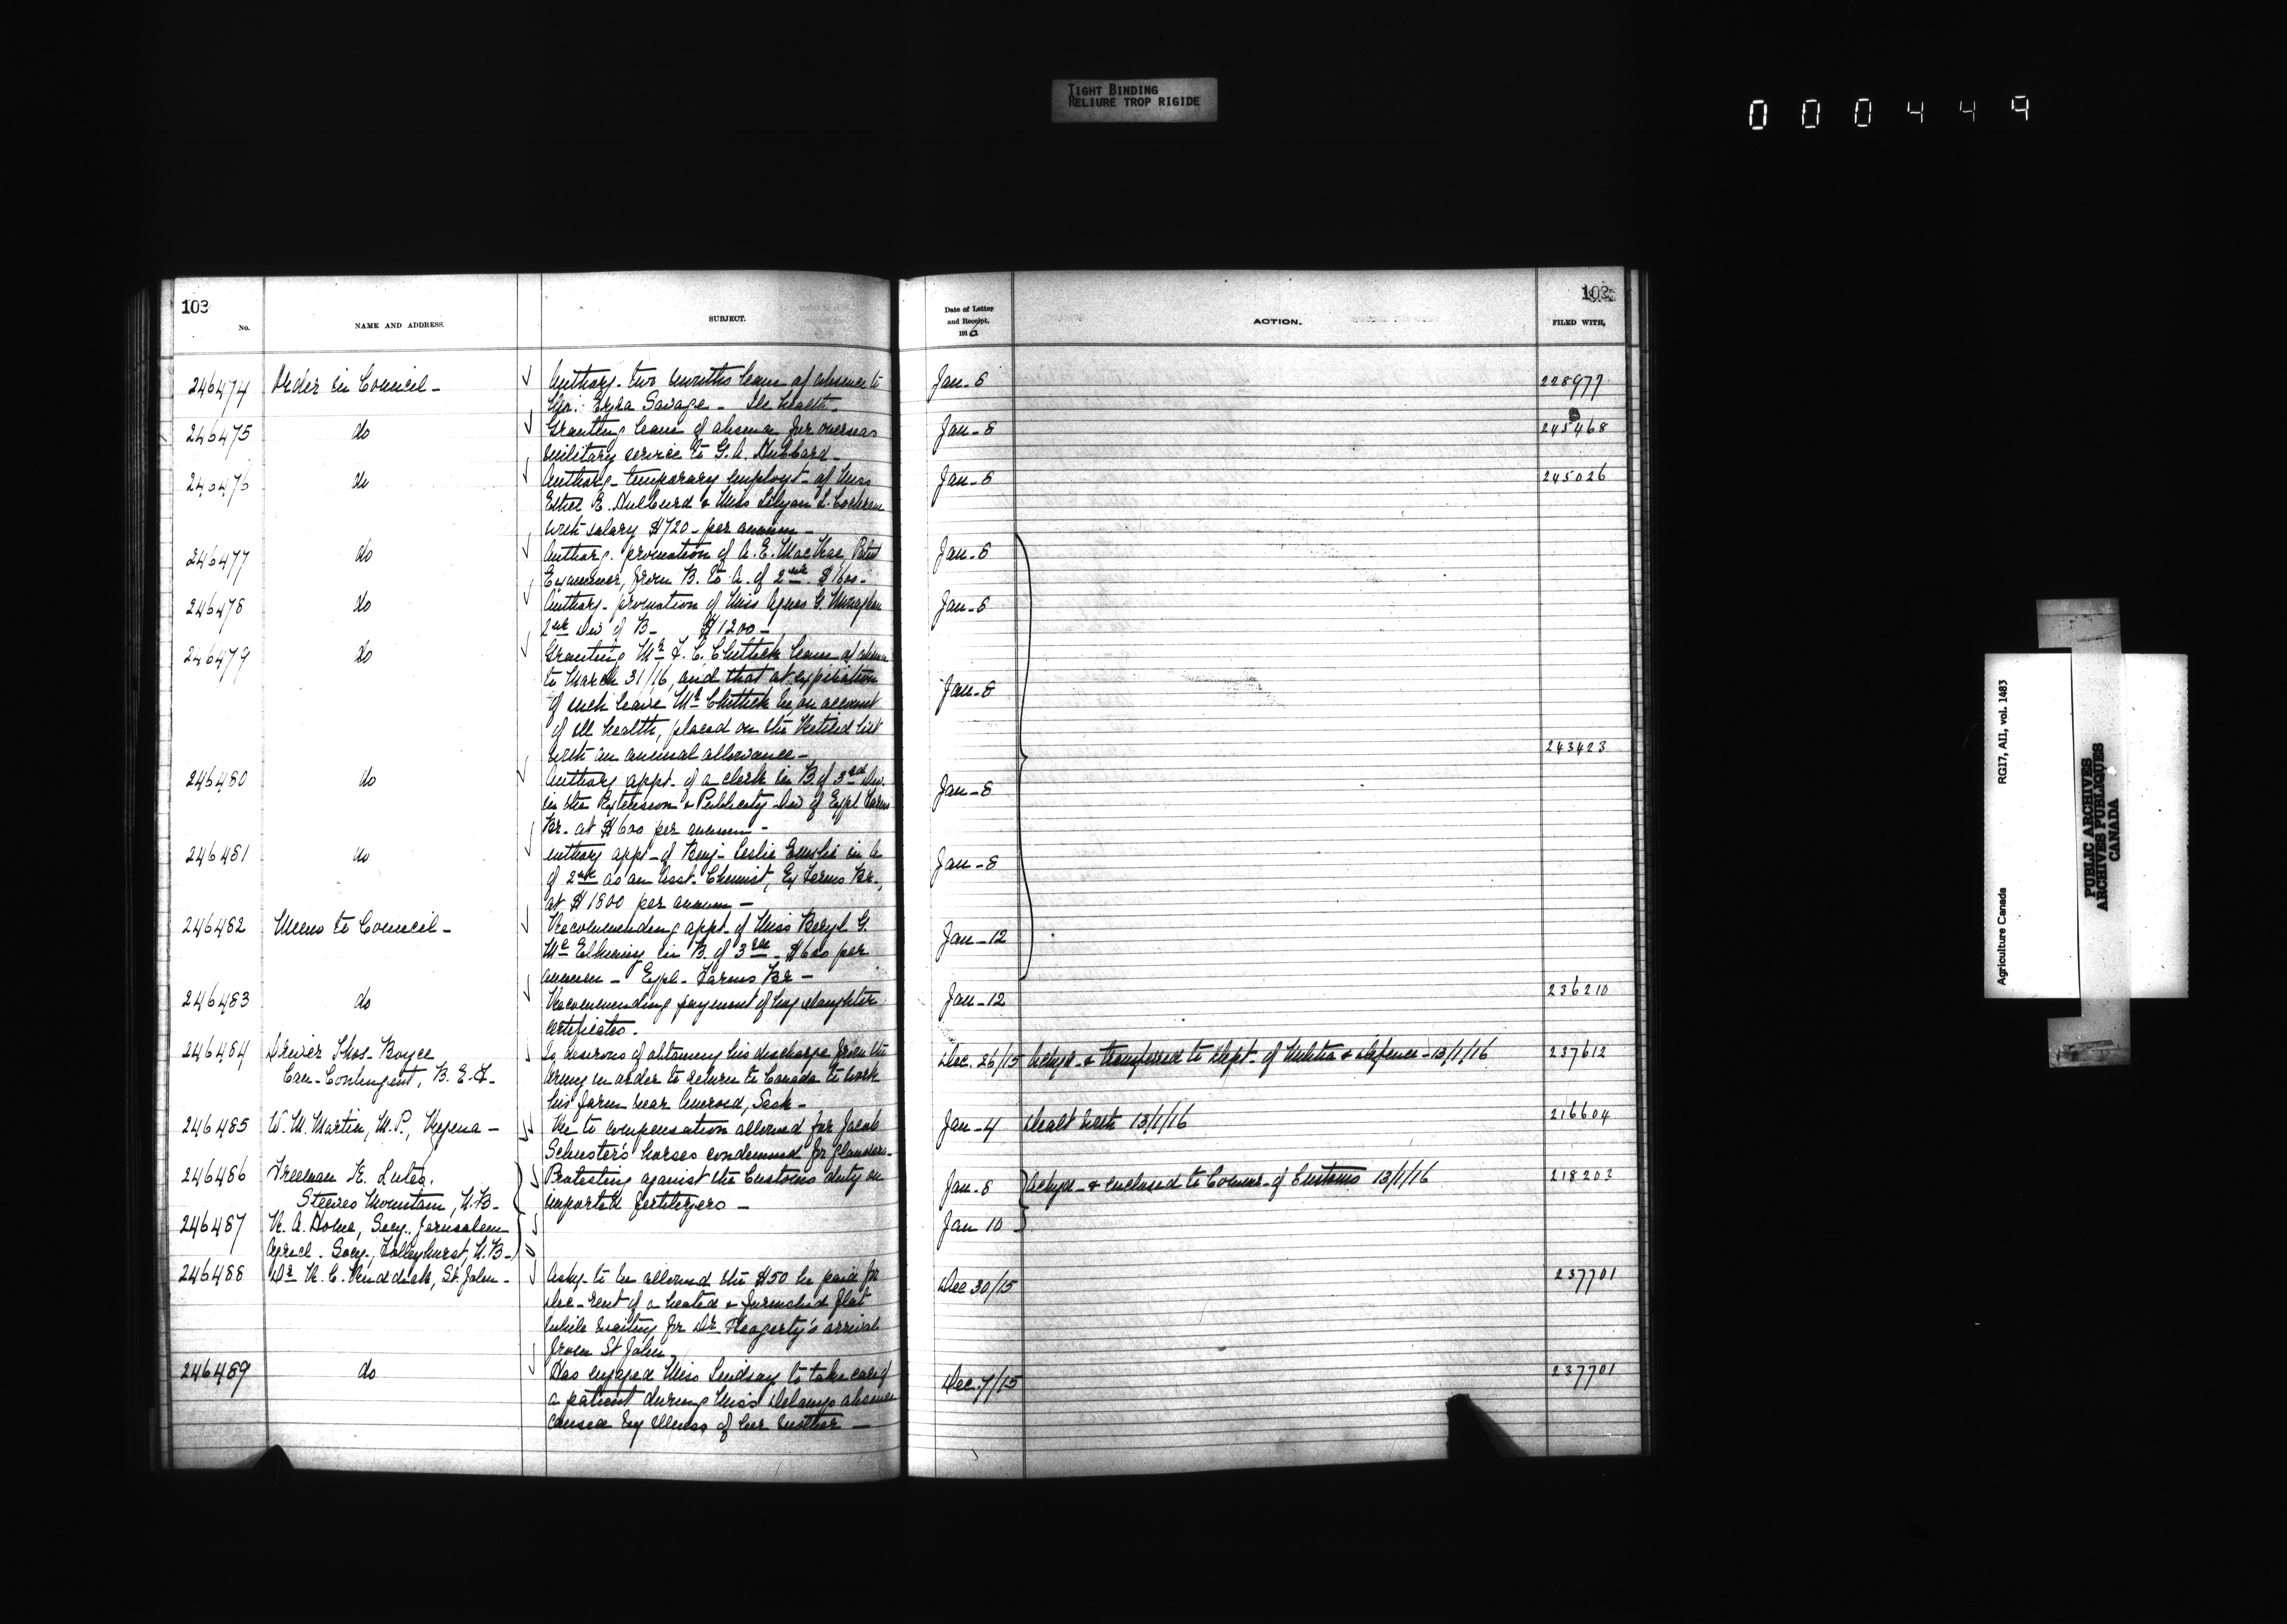 TIGHT BINDING
RELIURE TROP RIGIDE
000449
103
No.
NAME AND ADDRESS.
SUBJECT.
Date of Letter
and Receipt,
1916
ACTION.
103
FILED WITH,
246474 Order in Council - Authorg. two months leave of absence to Jan-8 228977
Mr. Ezra Savage - Ill health -
246475 do Granting leave of absence for overseas Jan-8 245468
military service to G. A. Hubbard -
246476 do Authorg - temporary employt - of Miss Jan-8 245026
Ethel E. Hulburd & Miss Lilyan L. Cochrane
with salary $720 - per annum -
246477 do Authorg. promotion of A. E. MacRae, Patent Jan-8
Examiner, from B. to A. of 2nd $1600 -
246478 do Authorg - promotion of Miss Agnes G. Monaghan Jan-8
2nd Div of B - $1200 -
246479 do Granting Mr F. C. Chittick leave of absence
to March 31/16, and that at expiration Jan-8
of such leave Mr Chittick be, on account
of ill health, placed on the Retired list
with an annual allowance - 243423
246480 do Authorg appt. of a clerk in B. of 3rd Div. Jan-8
in the Extension & Publicity Div of Expl Farms
Br. at $600 per annum -
246481 do Authorg appt - of Benj - Leslie Emslie in A Jan-8
of 2nd as an Asst. Chemist, Ex Farms Br.,
at $1800 per annum -
246482 Memo to Council - Recommending appt - of Miss Beryl G. Jan-12
Mc Elhiney in B. of 3rd - $600 per
annum - Expl - Farms Br -
246483 do Recommending payment of hog slaughter Jan-12 236210
certificates.
246484 Driver Thos - Boyce Is desirous of obtaining his discharge from the Dec. 26/15 Ackgd - & transferred to Dept - of Militia & Defence - 13/1/16 237612
Can - Contingent, B. E. F. - army in order to return to Canada to work
his farm near Aneroid, Sask -
246485 W. M. Martin, M. P., Regina - Re to compensation allowed for Jacob Jan-4 Dealt with 13/1/16 216604
Schuster's horses condemned for glanders -
246486 Freeman H. Lutes, Protesting against the Customs duty on Jan-8 Ackgd - & enclosed to Commr - of Customs 13/1/16 218203
Steeves Mountain, N. B - imported fertilizers -
246487 Secy., Jerusalem Jan 10
Agricl. Socy., N. B -
246488 Dr R. C. Ruddick, St. John - Asks - to be allowed the $50 he paid for Dec 30/15 237701
Dec - rent of a heated & furnished flat
while waiting for Dr Heagerty's arrival
from St John.
246489 do Has engaged Miss Lindsay to take care of Dec. 7/15 237701
a patient during Miss Delaneys absence
caused by illness of her mother -
Agriculture Canada RG17, AII, vol. 1483
PUBLIC ARCHIVES
ARCHIVES PUBLIQUES
CANADA